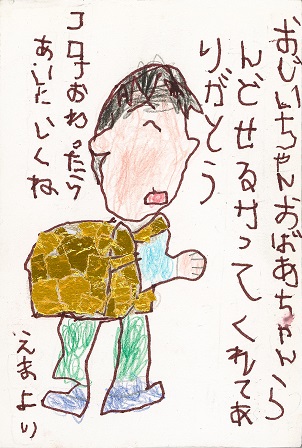 おじいちゃんおばあちゃんら
んどせるかってくれてあ
りがとう
コロナおわったら
あいにいくね
えまより